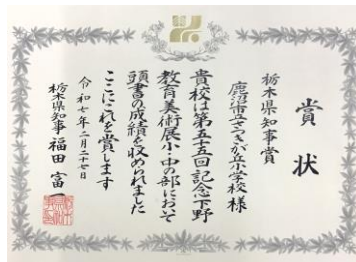 賞状
栃木県知事賞
鹿沼市立さつきが丘小学校 様
貴校は第五十五回記念下野
教育美術展小・中の部におい
頭書の成績を収められました
ここにこれを賞します
令和七年二月二十七日
栃木県知事 福田富一